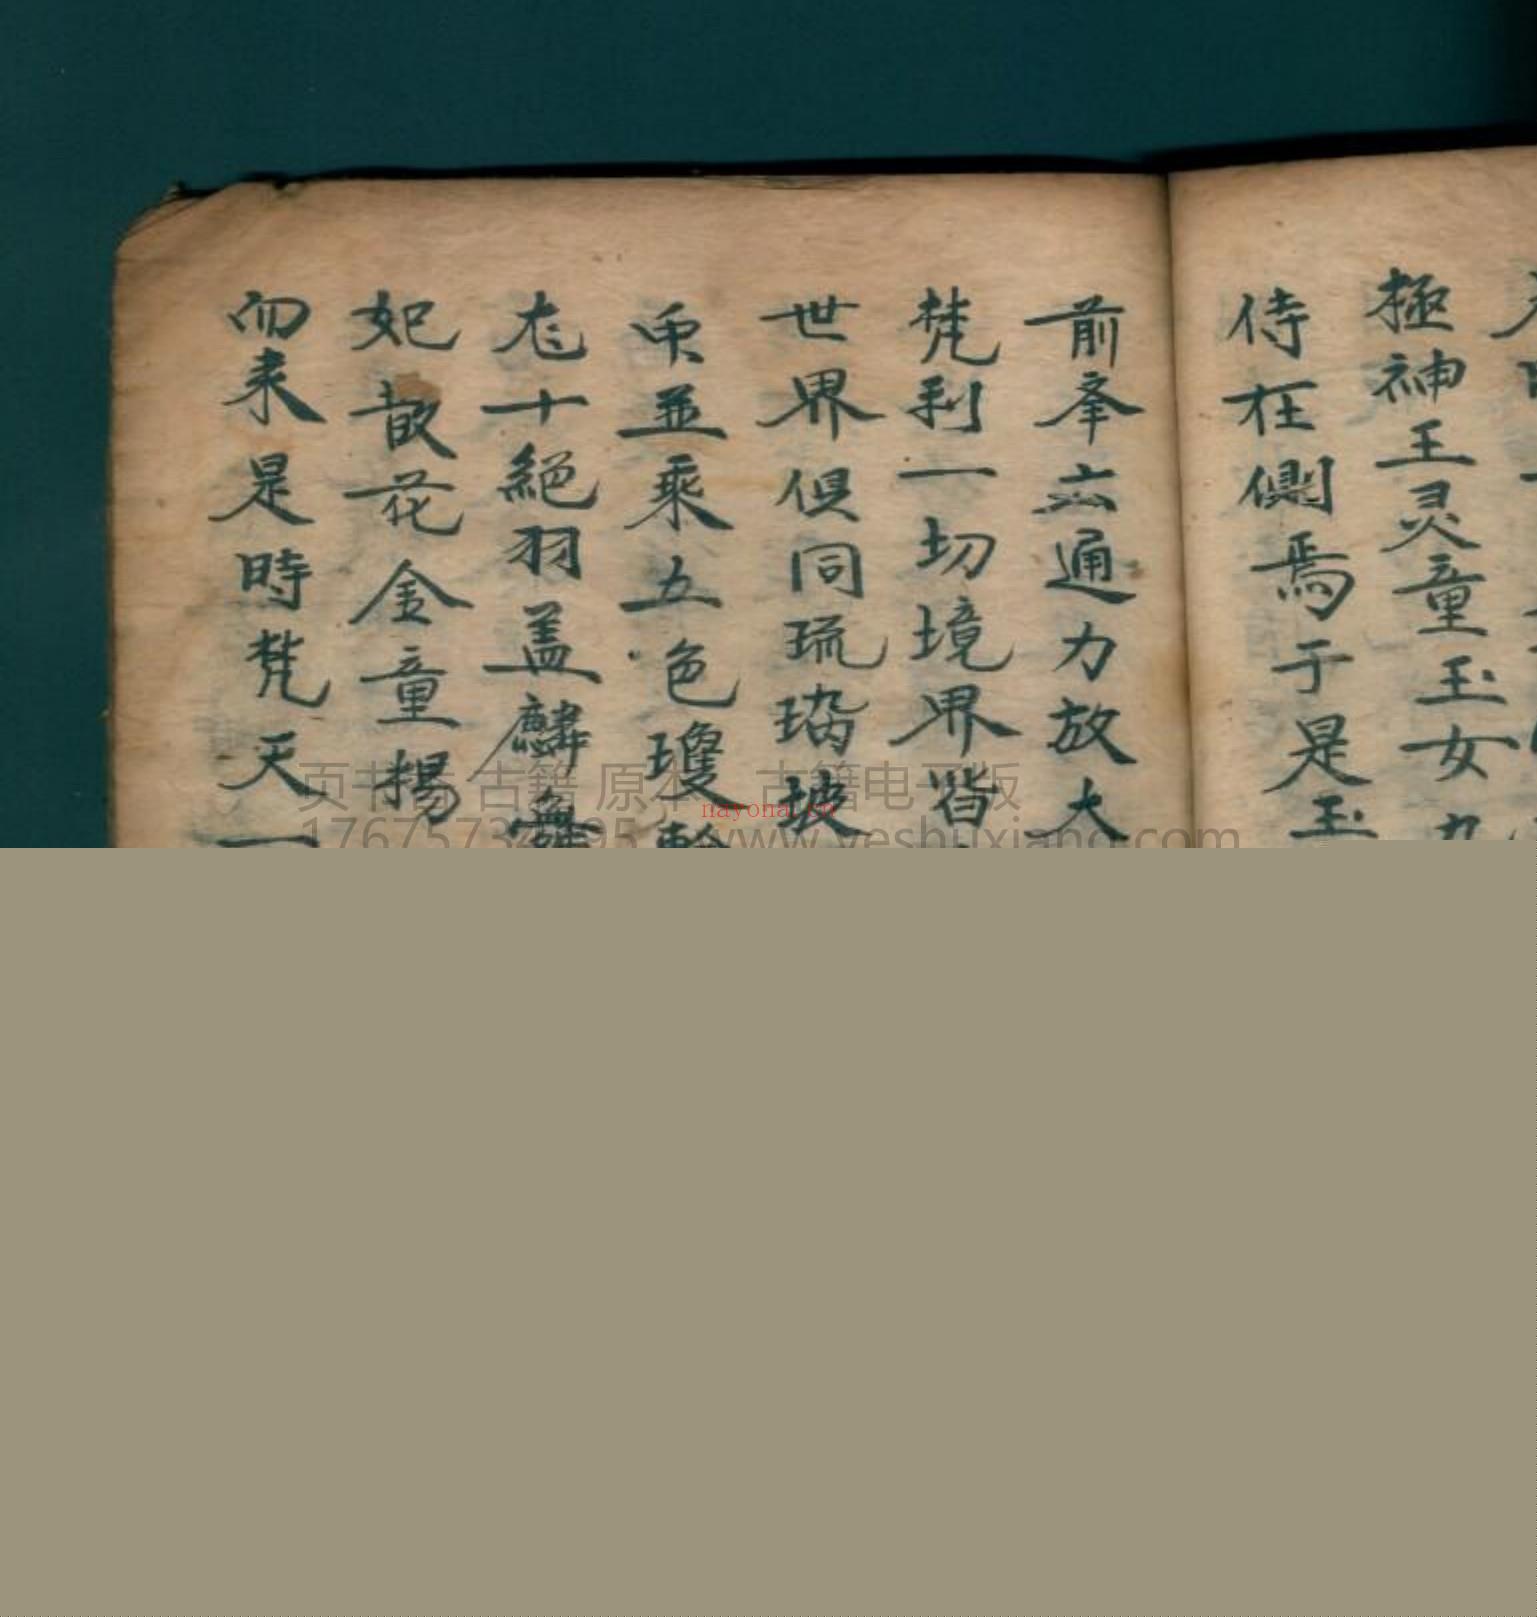 極神王灵童玉女九
侍在側焉于是玉
前峯六通力放大
梵刹一切境界皆
世界俱同琉璃玻
並乘五色瓊輪
十絕羽蓋麟舞
妃散花金童揚
而来是時梵天一
页书香 古籍 原本 古籍电子版
nayona.cn
www.yeshuxiang.com